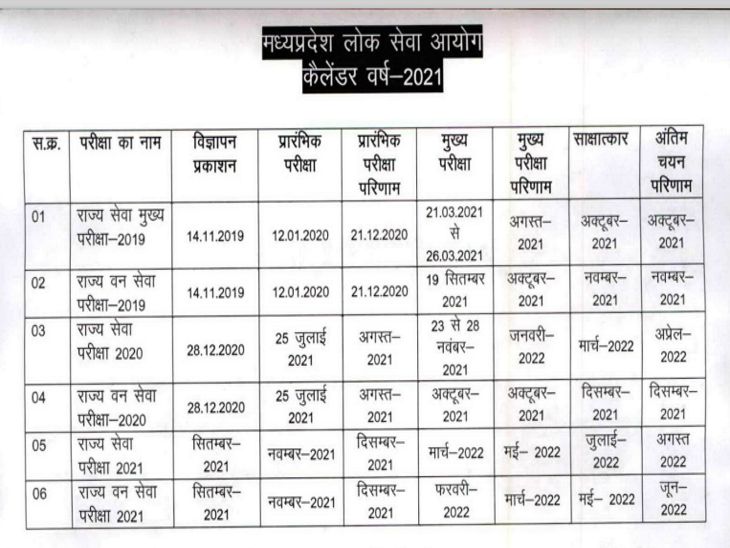 मध्यप्रदेश लोक सेवा आयोग
कैलेंडर वर्ष–2021
स.क्र. परीक्षा का नाम विज्ञापन प्रकाशन प्रारंभिक परीक्षा प्रारंभिक परीक्षा परिणाम मुख्य परीक्षा मुख्य परीक्षा परिणाम साक्षात्कार अंतिम चयन परिणाम
01 राज्य सेवा मुख्य परीक्षा–2019 14.11.2019 12.01.2020 21.12.2020 21.03.2021 से 26.03.2021 अगस्त–2021 अक्टूबर–2021 अक्टूबर–2021
02 राज्य वन सेवा परीक्षा–2019 14.11.2019 12.01.2020 21.12.2020 19 सितम्बर 2021 अक्टूबर–2021 नवम्बर–2021 नवम्बर–2021
03 राज्य सेवा परीक्षा 2020 28.12.2020 25 जुलाई 2021 अगस्त–2021 23 से 28 नवंबर–2021 जनवरी–2022 मार्च–2022 अप्रेल–2022
04 राज्य वन सेवा परीक्षा–2020 28.12.2020 25 जुलाई 2021 अगस्त–2021 अक्टूबर–2021 अक्टूबर–2021 दिसम्बर–2021 दिसम्बर–2021
05 राज्य सेवा परीक्षा 2021 सितम्बर–2021 नवम्बर–2021 दिसम्बर–2021 मार्च–2022 मई– 2022 जुलाई–2022 अगस्त 2022
06 राज्य वन सेवा परीक्षा 2021 सितम्बर–2021 नवम्बर–2021 दिसम्बर–2021 फरवरी–2022 मार्च–2022 मई– 2022 जून–2022